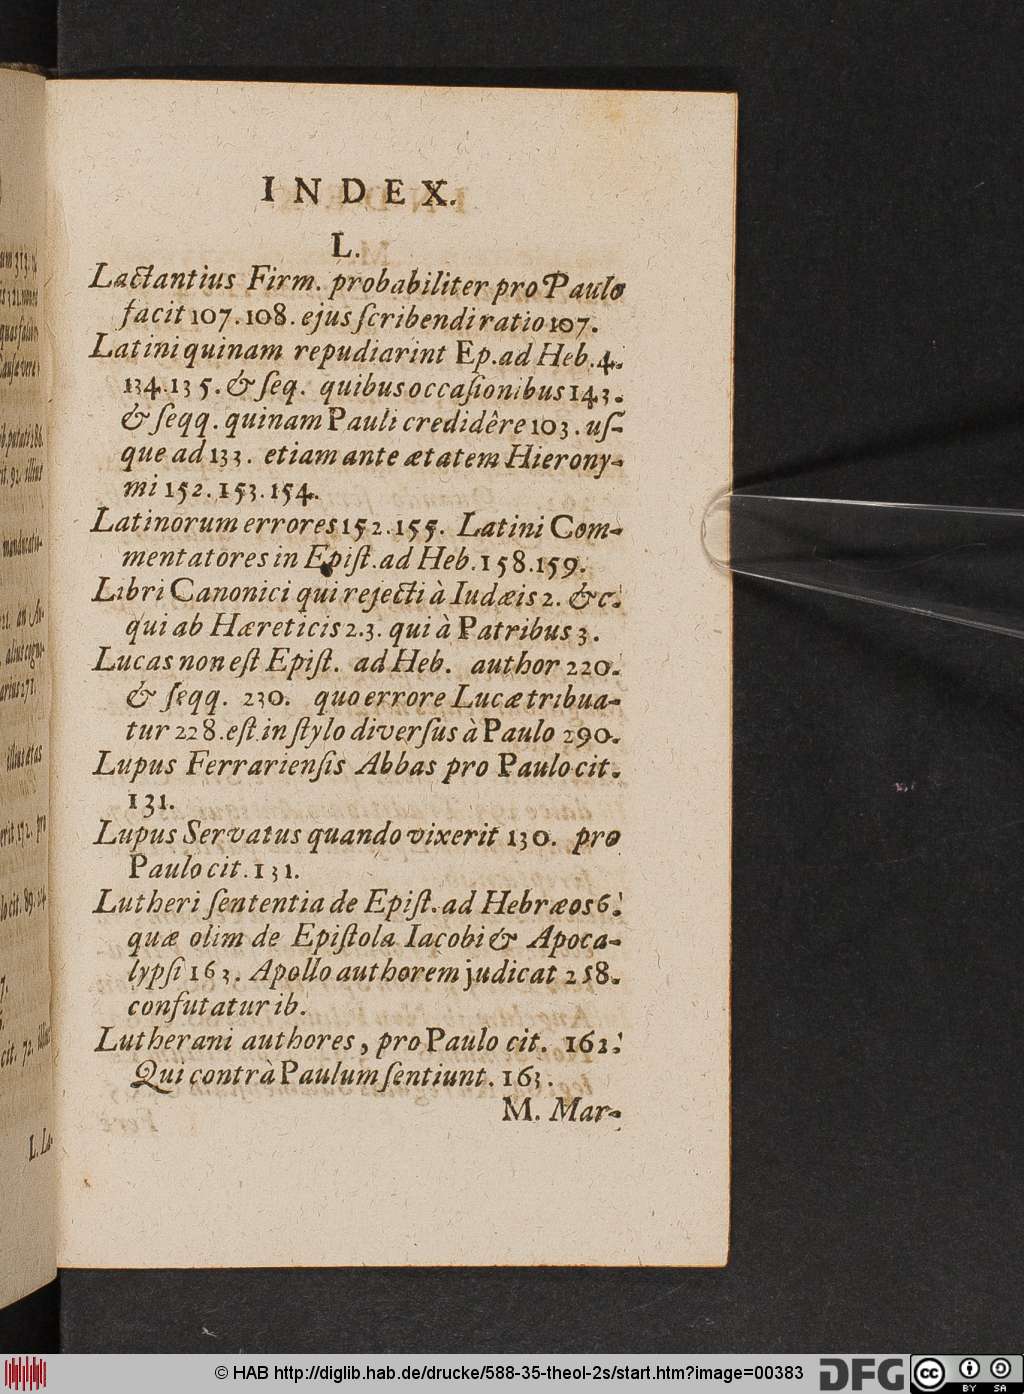 INDEX.
L.
Lactantius Firm. probabiliter pro Paulo
facit 107. 108. ejus ſcribendi ratio 107.
Latini quinam repudiarint Ep. ad Heb. 4.
134. 135. & ſeq. quibus occaſionibus 143.
& ſeqq. quinam Pauli credidêre 103. uſ-
que ad 133. etiam ante ætatem Hierony-
mi 152. 153. 154.
Latinorum errores 152. 155. Latini Com-
mentatores in Epiſt. ad Heb. 158. 159.
Libri Canonici qui rejecti à Iudæis 2. &c.
qui ab Hæreticis 2. 3. qui à Patribus 3.
Lucas non eſt Epiſt. ad Heb. author 220.
& ſeqq. 230. quo errore Lucæ tribua-
tur 228. eſt in ſtylo diverſus à Paulo 290.
Lupus Ferrarienſis Abbas pro Paulo cit.
131.
Lupus Servatus quando vixerit 130. pro
Paulo cit. 131.
Lutheri ſententia de Epiſt. ad Hebræos 6.
quæ olim de Epiſtola Iacobi & Apoca-
lypſi 163. Apollo authorem judicat 258.
confutatur ib.
Lutherani authores, pro Paulo cit. 162.
Qui contrà Paulum ſentiunt. 163.
M. Mar-
L. La-
© HAB http://diglib.hab.de/drucke/588-35-theol-2s/start.htm?image=00383
DFG
cc
BY SA